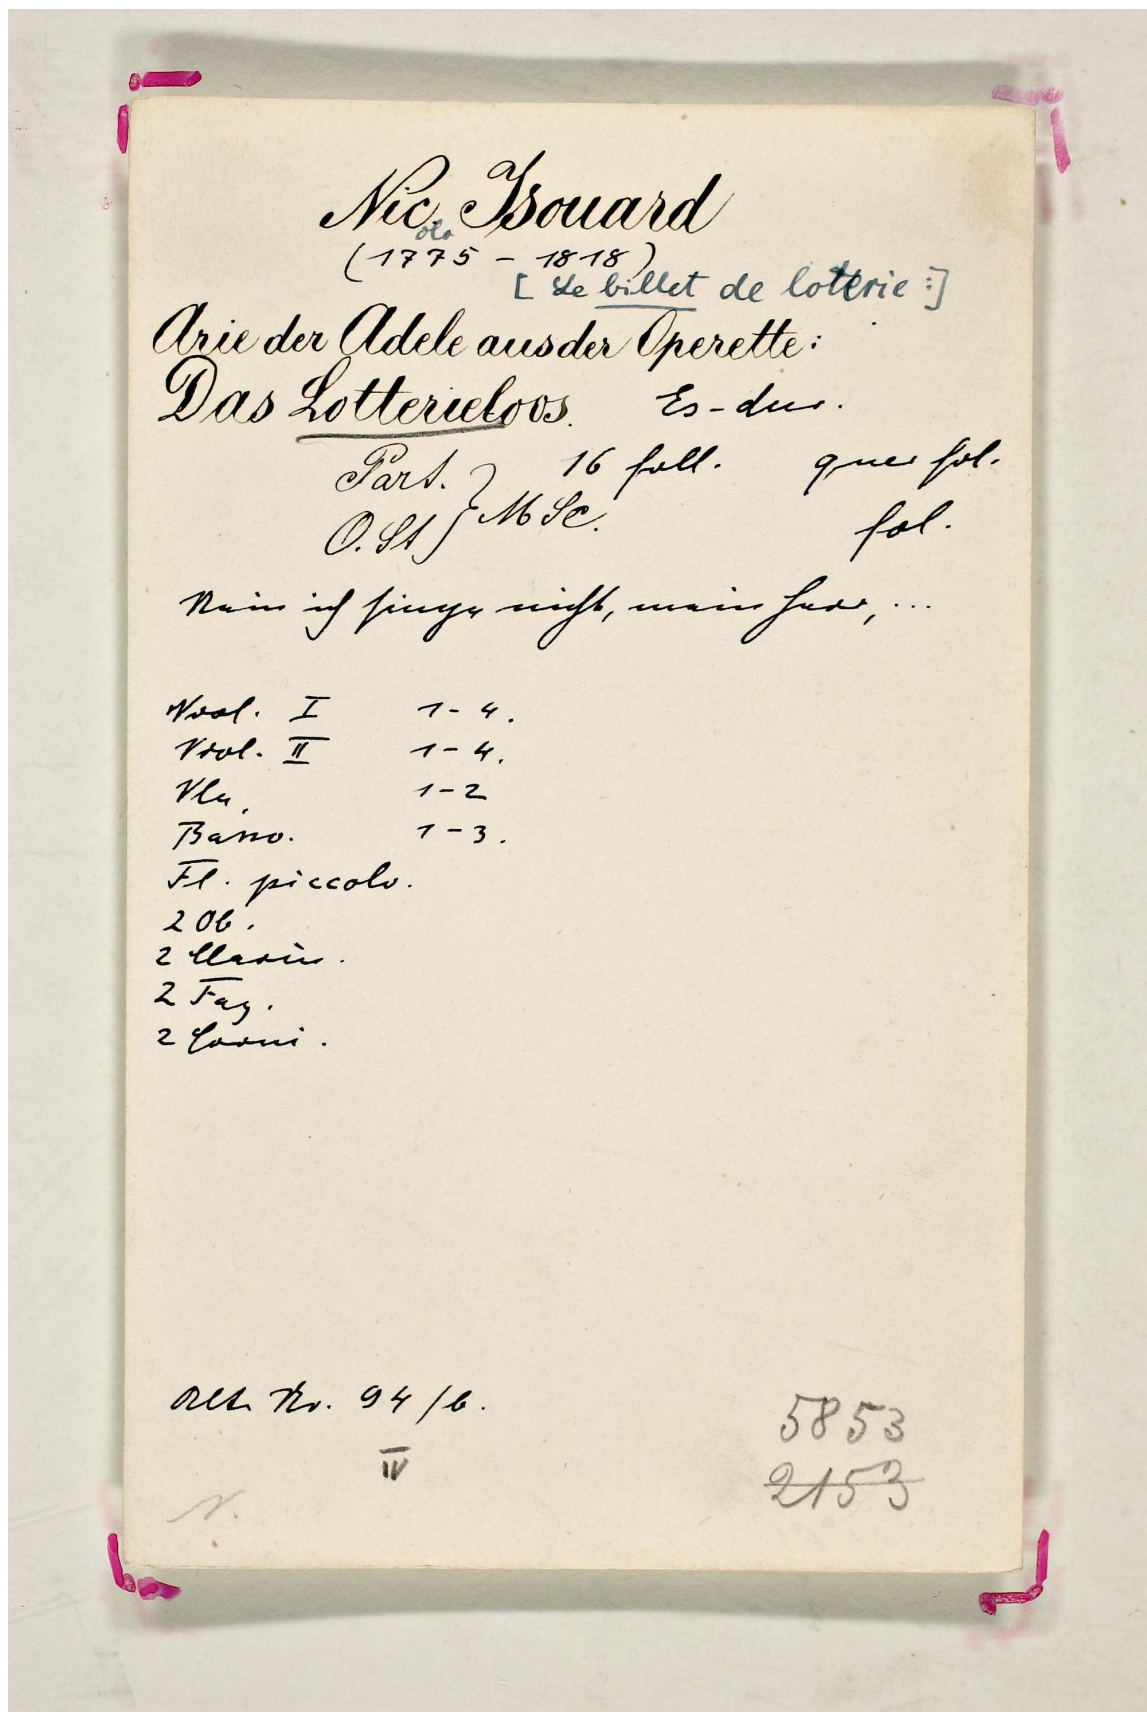 Nic. Isouard
olo
(1775 - 1818)
[Le billet de loterie:]
Arie der Adele aus der Operette:
Das Lotterieloos. Es-dur.
Part. } 16 foll. quer fol.
O. St } MSc. fol.
Nein ich singe nicht, mein Herr, ...
Viol. I 1-4.
Viol. II 1-4.
Vla. 1-2
Basso. 1-3.
Fl. piccolo.
2 Ob.
2 Clarin.
2 Fag.
2 Corni.
Alte Nr. 94/b.
IV
5853
2153
N.